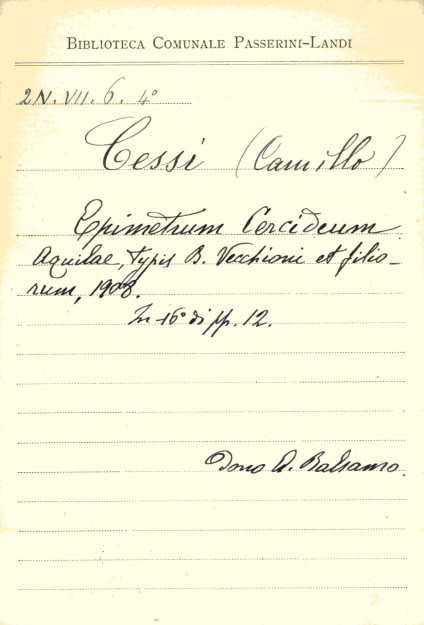 BIBLIOTECA COMUNALE PASSERINI-LANDI
2N. VII. 6. 4°
Cessi (Camillo)
Epimetrum Cercideum.
Aquilae, typis B. Vecchioni et filio-
rum, 1908.
In-16° di pp. 12.
Dono A. Balsamo.